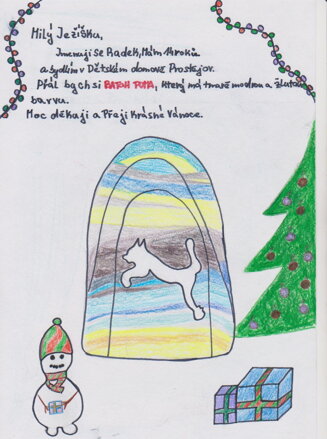 Milý Ježíšku,
Jmenuji se Radek, Mám 14 roků
a bydlím v Dětském domově Prostějov.
Přál bych si BATOH PUMA, který má tmavě modrou a žlutou
barvu.
Moc děkuji a Přeji Krásné Vánoce.